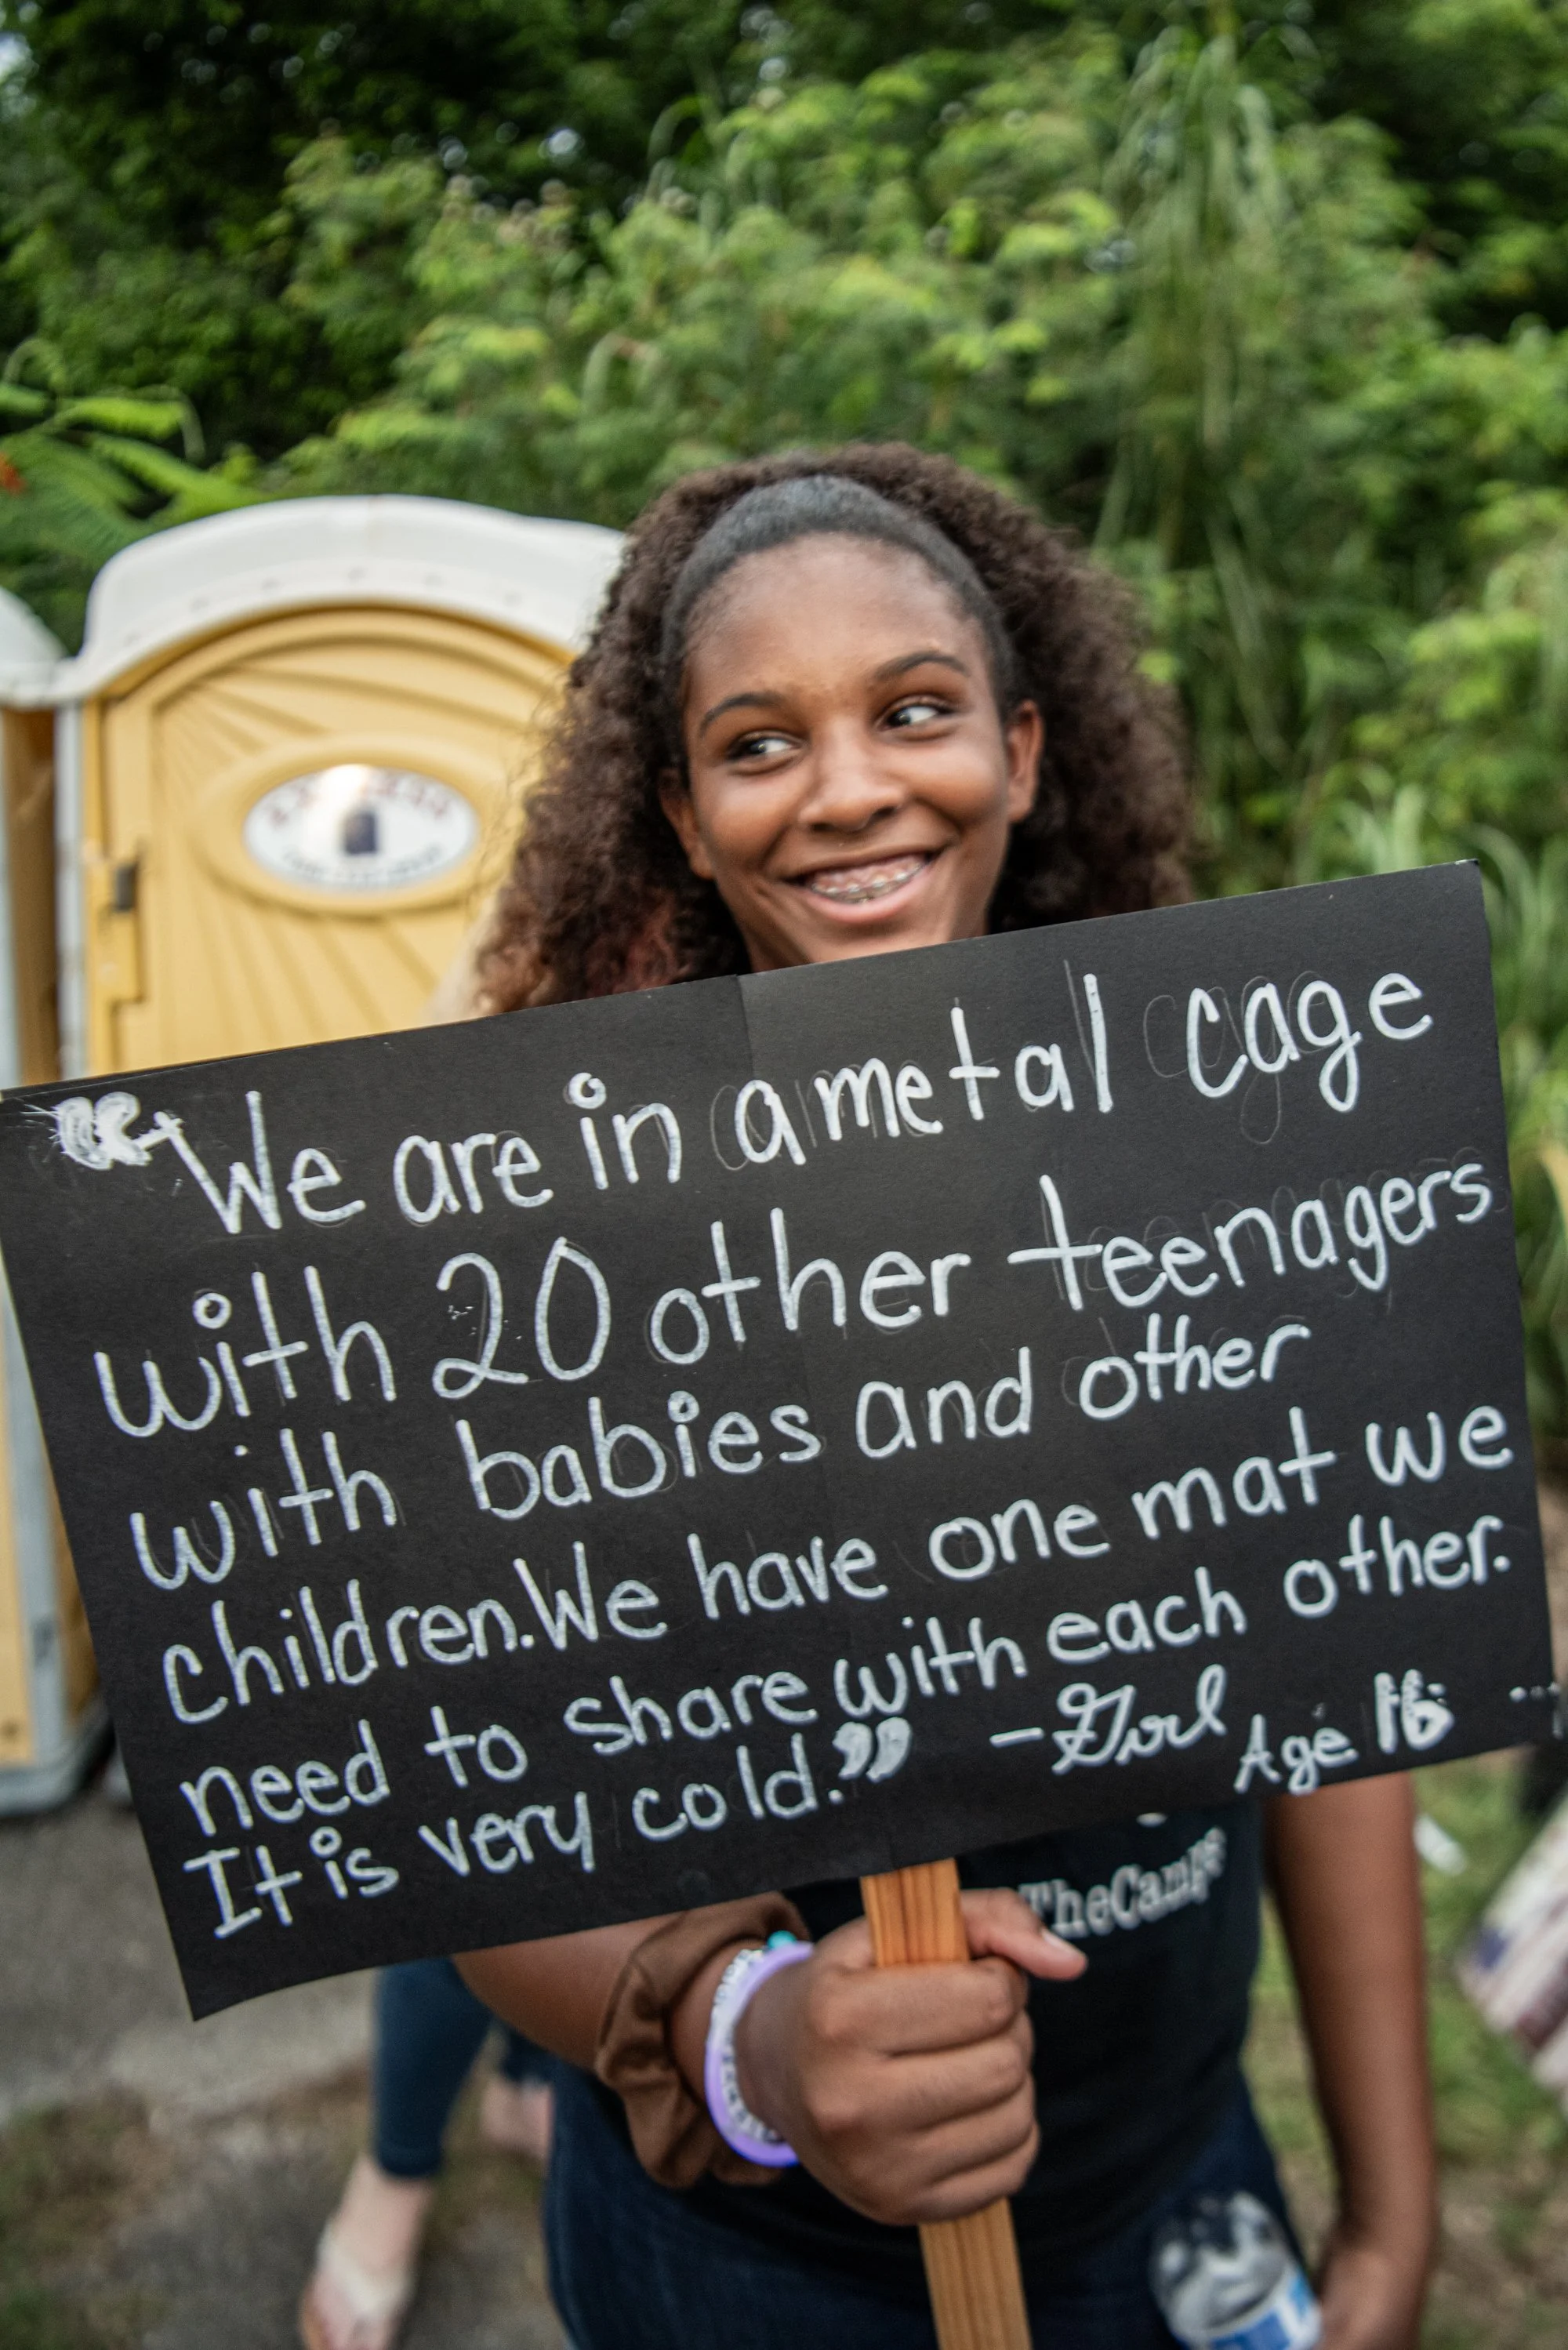 “We are in a metal cage
with 20 other teenagers
with babies and other
children. We have one mat we
need to share with each other.
It is very cold.” - Girl Age 16
TheCamps